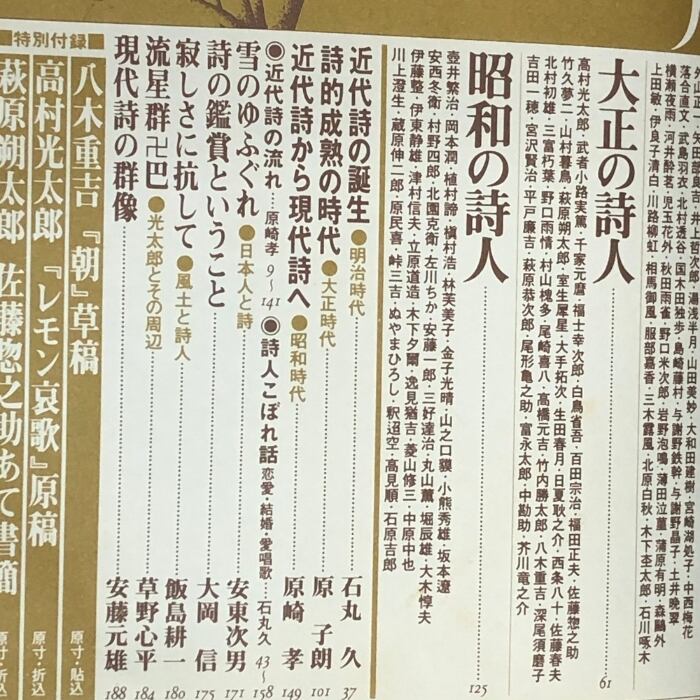 外山正一・矢田部良吉・井上哲次郎・湯浅半月・山田美妙・大和田建樹・宮崎湖処子・中西梅花
落合直文・武島羽衣・北村透谷・国木田独歩・島崎藤村・与謝野鉄幹・与謝野晶子・土井晩翠
横瀬夜雨・河井酔茗・児玉花外・秋田雨雀・野口米次郎・岩野泡鳴・薄田泣菫・蒲原有明・森鷗外
上田敏・伊良子清白・川路柳虹・相馬御風・服部嘉香・三木露風・北原白秋・木下杢太郎・石川啄木
大正の詩人 61
高村光太郎・武者小路実篤・千家元麿・福士幸次郎・白鳥省吾・百田宗治・福田正夫・佐藤惣之助
竹久夢二・山村暮鳥・萩原朔太郎・室生犀星・大手拓次・生田春月・日夏耿之介・西条八十・佐藤春夫
北村初雄・三富朽葉・野口雨情・村山槐多・尾崎喜八・高橋元吉・竹内勝太郎・八木重吉・深尾須磨子
吉田一穂・宮沢賢治・平戸廉吉・萩原恭次郎・尾形亀之助・富永太郎・中勘助・芥川竜之介
昭和の詩人 125
壺井繁治・岡本潤・植村諦・槇村浩・林芙美子・金子光晴・山之口貘・小熊秀雄・坂本遼
安西冬衛・村野四郎・北園克衛・左川ちか・安藤一郎・三好達治・丸山薫・堀辰雄・大木惇夫
伊藤整・伊東静雄・津村信夫・立原道造・木下夕爾・逸見猶吉・菱山修三・中原中也
川上澄生・蔵原伸二郎・原民喜・峠三吉・ぬやまひろし・釈迢空・高見順・石原吉郎
近代詩の誕生 ●明治時代 石丸久 37
詩的成熟の時代 ●大正時代 原子朗 101
近代詩から現代詩へ ●昭和時代 原崎孝 149
◉近代詩の流れ 原崎孝 9〜141 ◉詩人こぼれ話 恋愛・結婚・愛唱歌 石丸久 43〜158
雪のゆふぐれ ●日本人と詩 安東次男 171
詩の鑑賞ということ 大岡信 175
寂しさに抗して ●風土と詩人 飯島耕一 180
流星群卍巴 ●光太郎とその周辺 草野心平 184
現代詩の群像 安藤元雄 188
■特別付録
八木重吉『朝』草稿 原寸・貼込
高村光太郎『レモン哀歌』原稿 原寸・折込
萩原朔太郎 佐藤惣之助あて書簡 原寸・折込